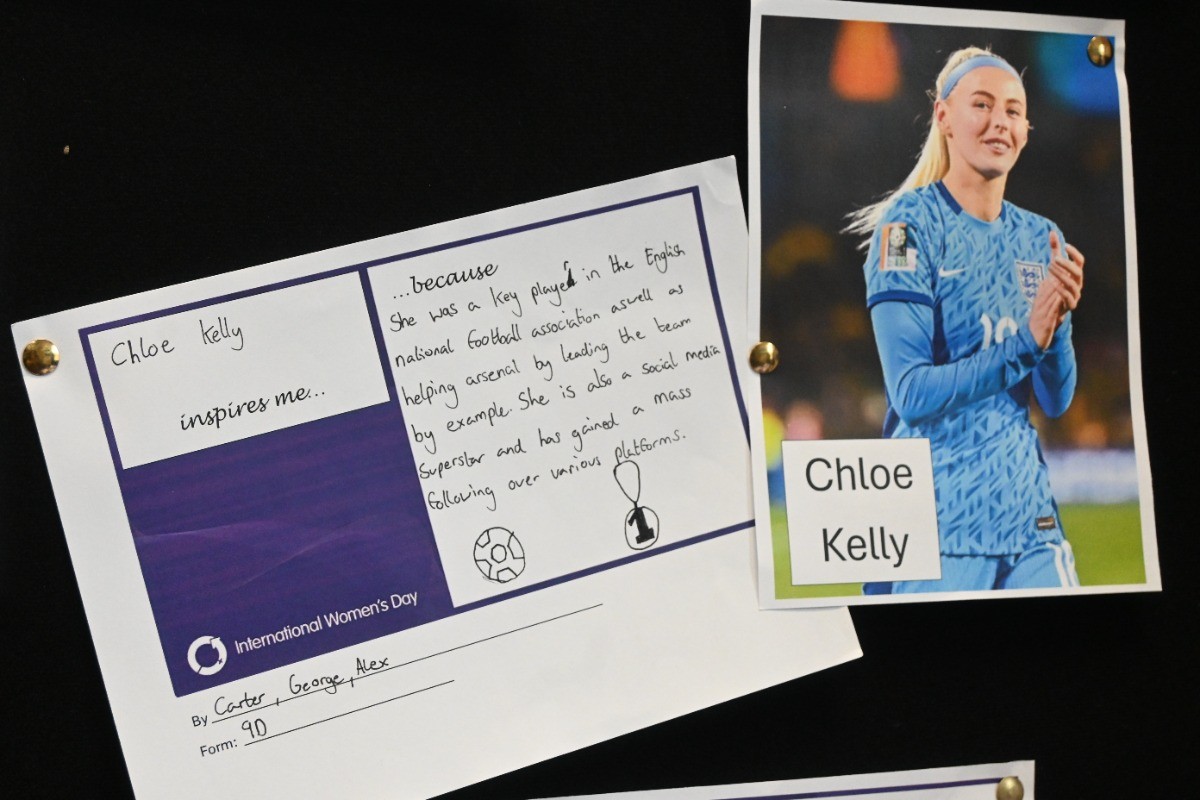 Chloe Kelly
inspires me...
...because
She was a key player in the English
national football association aswell as
helping arsenal by leading the team
by example. She is also a social media
Superstar and has gained a mass
following over various platforms.
1
International Women's Day
By Carter, George, Alex
Form: 9D
Chloe
Kelly